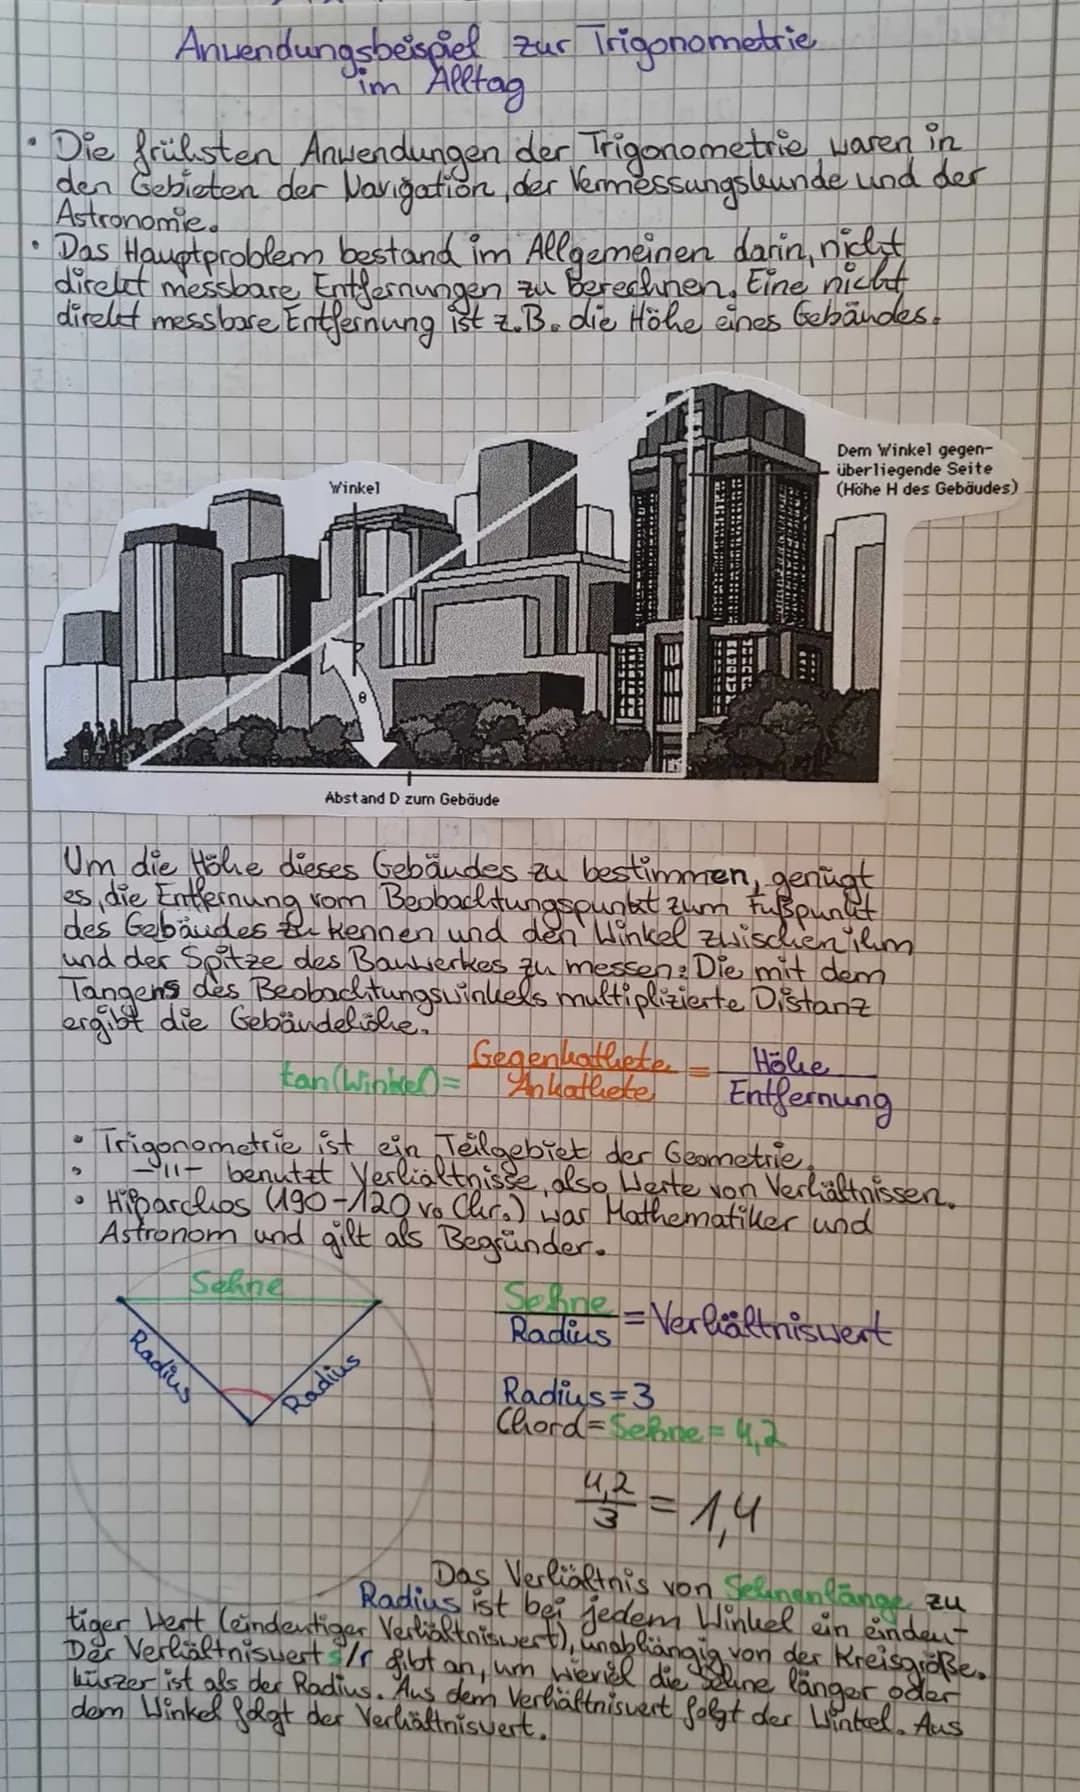 Anwendungsbeispiel zur Trigonometrie
im Alltag
• Die frühsten Anwendungen der Trigonometrie waren in
den Gebieten der Navigation, der Vermessungskunde und der
Astronomie.
• Das Hauptproblem bestand im Allgemeinen darin, nicht
direkt messbare Entfernungen zu Berechnen. Eine nicht
direkt messbare Entfernung ist z.B. die Höhe eines Gebäudes.
Winkel
Dem Winkel gegen-
überliegende Seite
(Höhe H des Gebäudes)
θ
Abstand D zum Gebäude
Um die Höhe dieses Gebäudes zu bestimmen, genügt
es, die Entfernung vom Beobachtungspunkt zum Fußpunkt
des Gebäudes zu kennen und den Winkel zwischen ihm
und der Spitze des Bauwerkes zu messen: Die mit dem
Tangens des Beobachtungswinkels multiplizierte Distanz
ergibt die Gebäudehöhe.
tan(Winkel) = Gegenkathete / Ankathete = Höhe / Entfernung
• Trigonometrie ist ein Teilgebiet der Geometrie.
• —"— benutzt Verhältnisse, also Werte von Verhältnissen.
• Hiparchos (190-120 v. Chr.) war Mathematiker und
Astronom und gilt als Begründer.
Sehne
Radius
Radius
Sehne / Radius = Verhältniswert
Radius = 3
Chord = Sehne = 4,2
4,2 / 3 = 1,4
Das Verhältnis von Sehnenlänge zu
Radius ist bei jedem Winkel ein eindeu-
tiger Wert (eindeutiger Verhältniswert), unabhängig von der Kreisgröße.
Der Verhältniswert s/r gibt an, um wieviel die Sehne länger oder
kürzer ist als der Radius. Aus dem Verhältniswert folgt der Winkel. Aus
dem Winkel folgt der Verhältniswert.